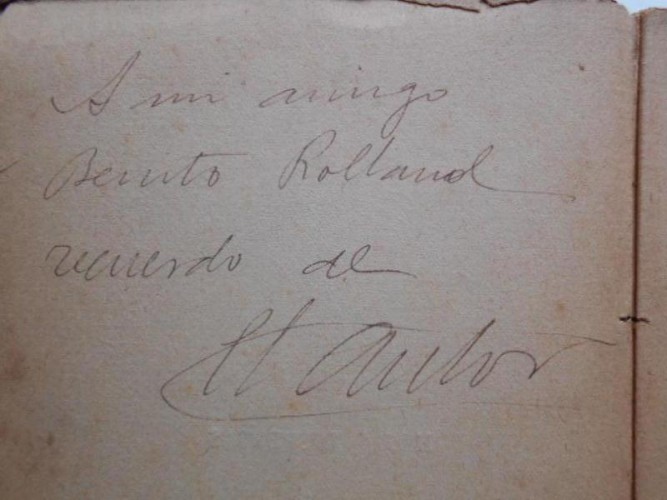 A mi amigo
Benito Rolland
recuerdo de
El Autor